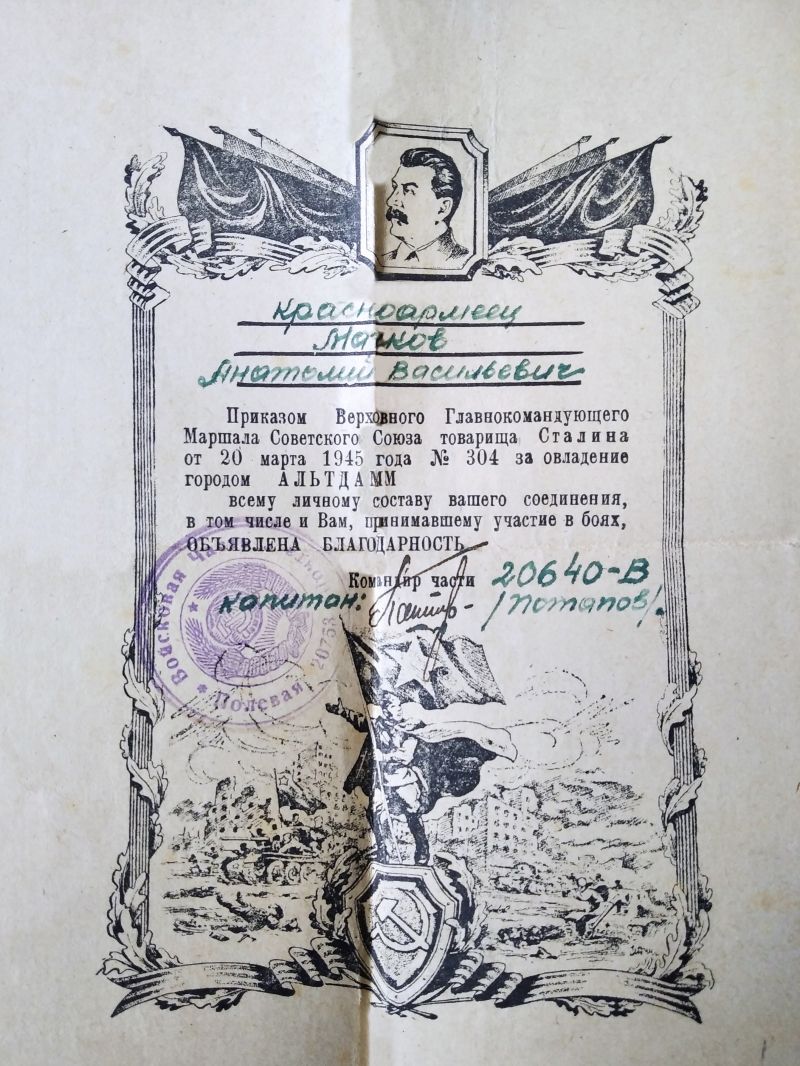 Красноармеец
Мачков
Анатолий Васильевич
Приказом Верховного Главнокомандующего
Маршала Советского Союза товарища Сталина
от 20 марта 1945 года № 304 за овладение
городом АЛЬТДАММ
всему личному составу вашего соединения,
в том числе и Вам, принимавшему участие в боях,
ОБЪЯВЛЕНА БЛАГОДАРНОСТЬ
Командир части 20640-В
капитан: /Потапов/.
Войсковая Ч
Полевая